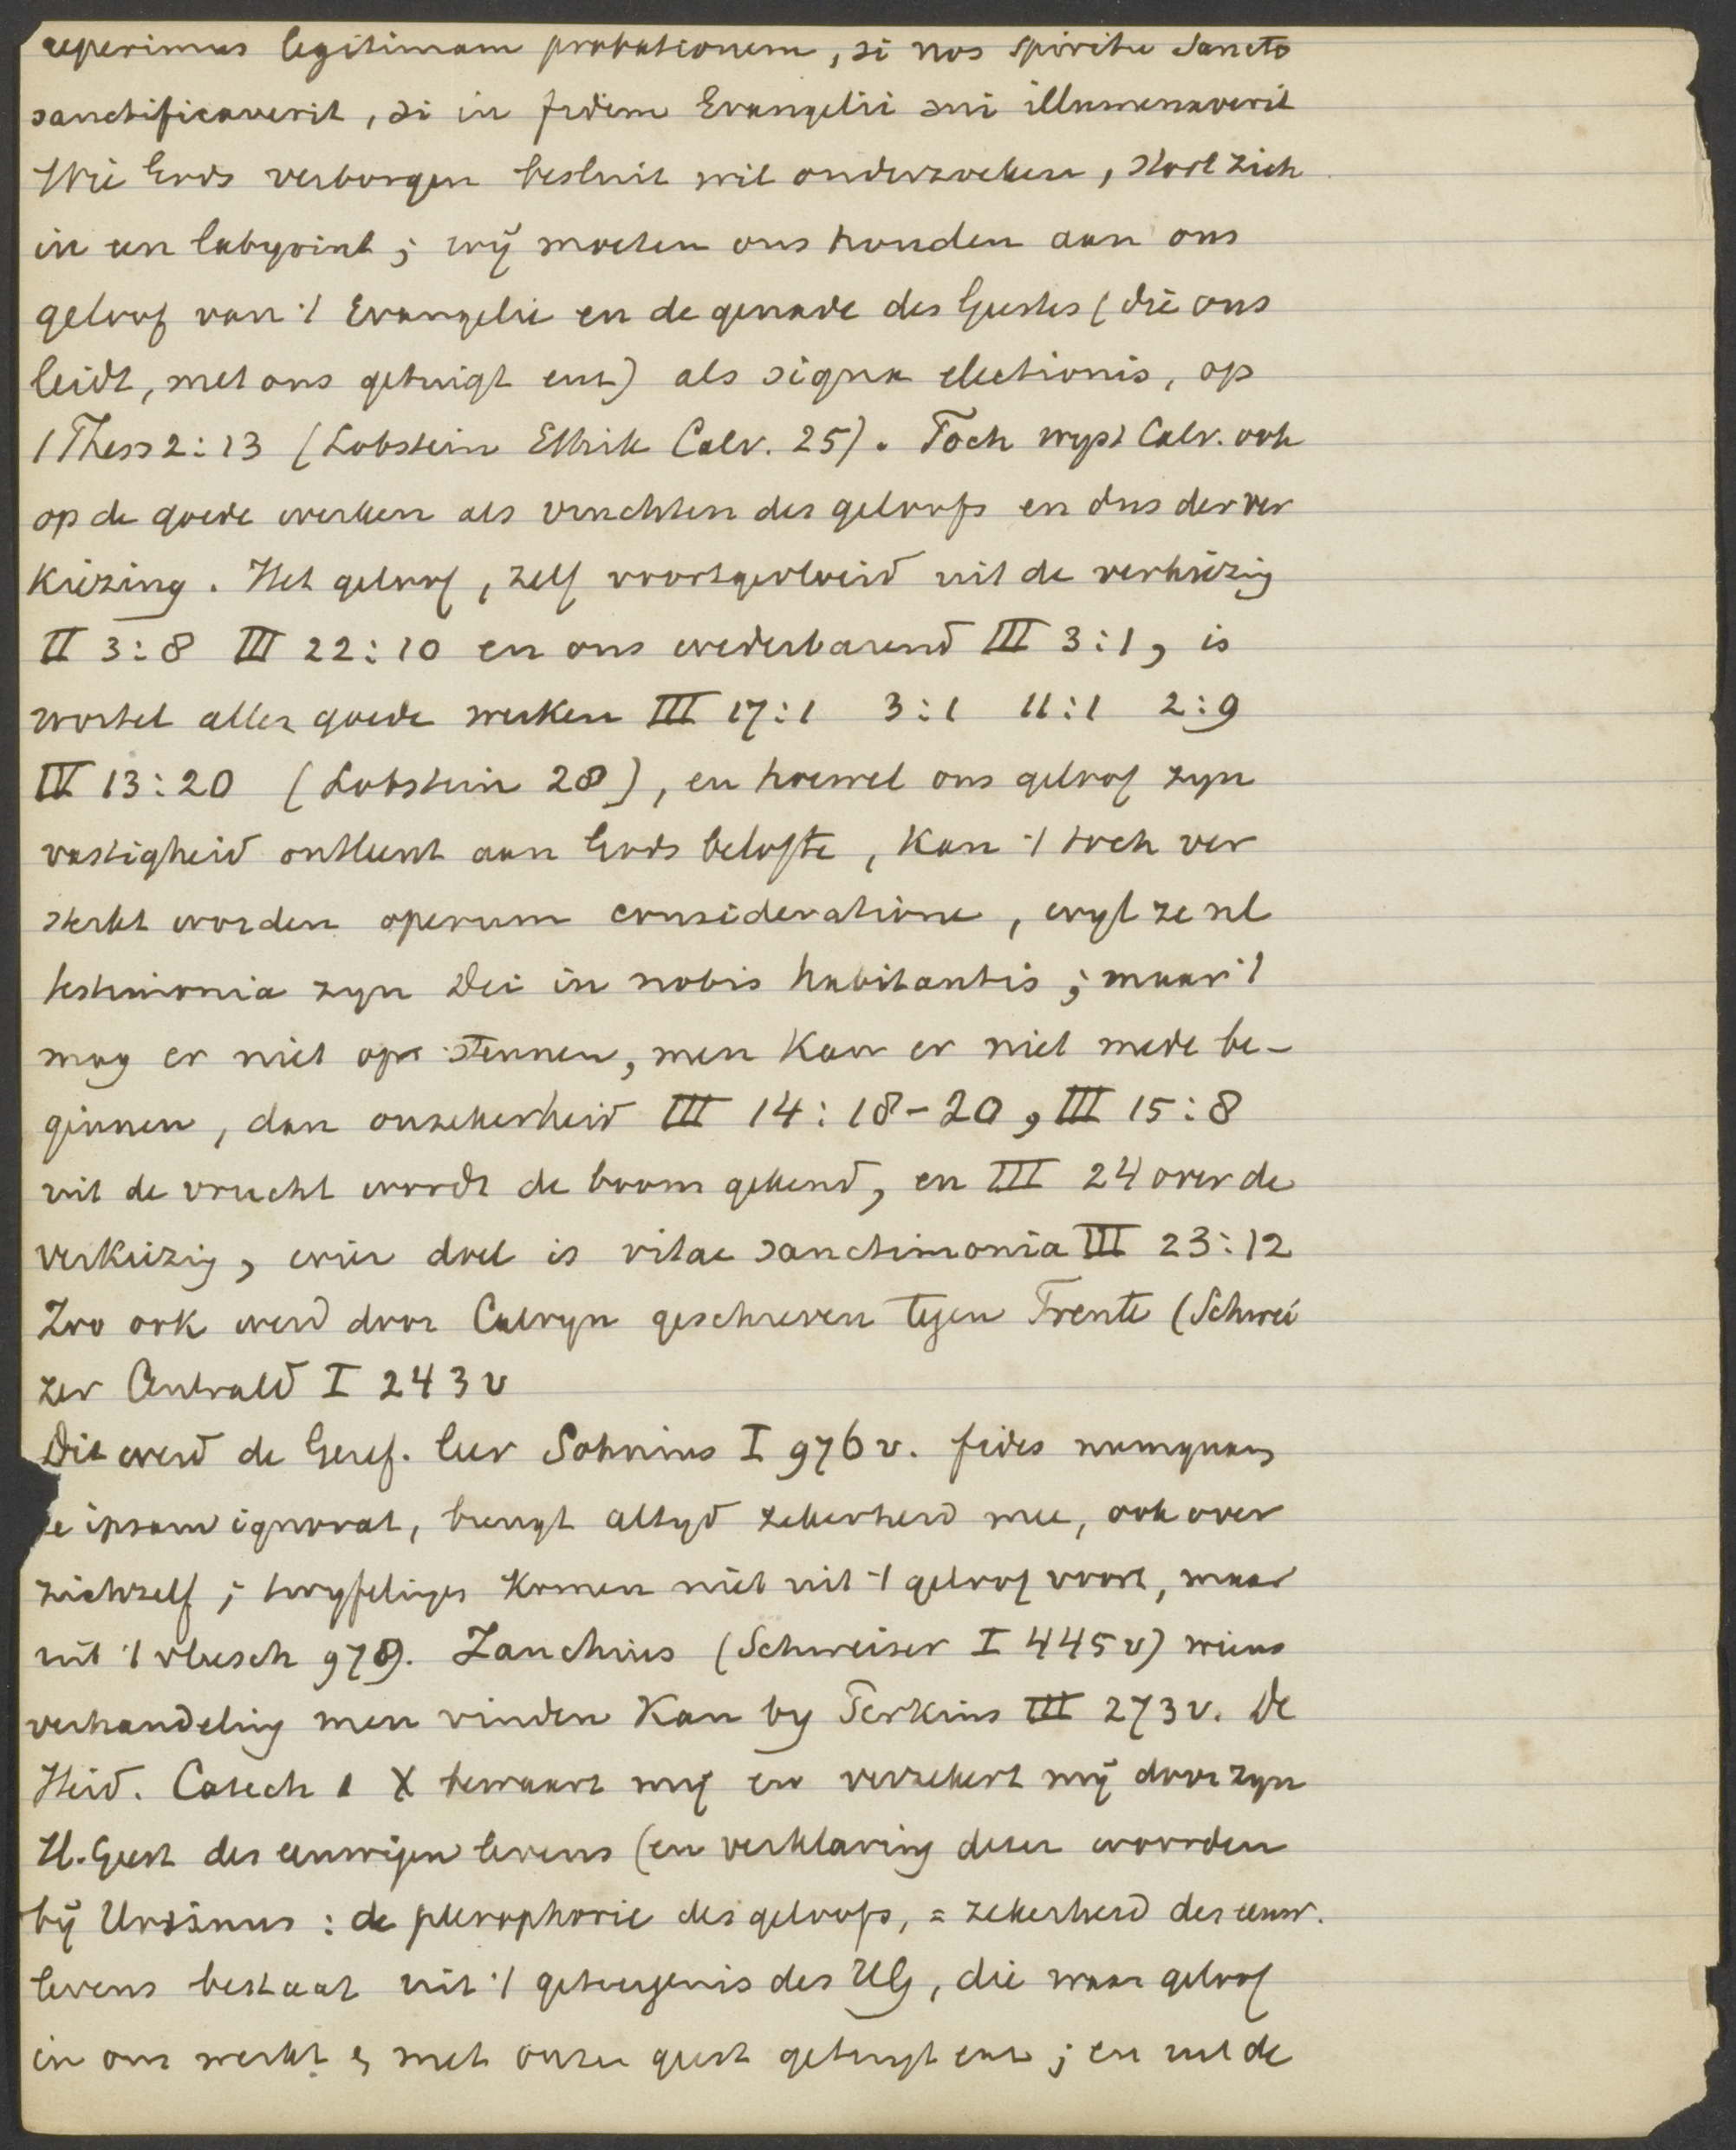 reperimus legitimam probationem, si nos spiritu sancto
sanctificaverit, si in fidem Evangelii sui illumenaverit
Wie Gods verborgen besluit wil onderzoeken, stort zich
in een labyrint ; wij moeten ons houden aan ons
geloof van 't Evangelie en de genade des Geestes (die ons
leidt, met ons getuigt enz) als signa electionis, op
1 Thess 2 : 13 (Lobstein Ethik Calv. 25). Toch wyst Calv. ook
op de goede werken als vruchten des geloofs en dus der ver
kiezing. Het geloof, zelf voortgevloeid uit de verkiezig
II 3 : 8 III 22 : 10 en ons wederbarend III 3 : 1, is
wortel aller goede werken III 17 : 1 3 : 1 11 : 1 2 : 9
IV 13 : 20 (Lobstein 28), en hoewel ons geloof zyn
vastigheid ontleent aan Gods belofte, kan 't toch ver
sterkt worden operum consideratione, wyl ze nl
testimonia zyn Dei in nobis habitantis ; maar 't
mag er niet op steunen, men kan er niet mede be-
ginnen, dan onzekerheid III 14 : 18-20, III 15 : 8
uit de vrucht wordt de boom gekend, en III 24 over de
verkiezig, wier doel is vitae sanctimonia III 23 : 12
Zoo ook werd door Calvyn geschreven tegen Trente (Schwei
zer Centrald I 243 v
Dit werd de Geref. leer Sohnius I 976 v. fides numquam
se ipsam ignorat, brengt altyd zekerheid mee, ook over
zichzelf ; twyfeliges komen niet uit 't geloof voort, maar
uit 't vleesch 979. Zanchius (Schweiser I 445 v) wiens
verhandelig men vinden kan by Perkins III 273 v. De
Heid. Catech 1 X bewaart mij en verzekert mij door zyn
H. Geest des eeuwigen levens (en verklaring dezer woorden
bij Ursinus : de plerophorie des geloofs, = zekerheid des eeuw.
levens bestaat uit 't getuigenis des HG, die waar geloof
in ons werkt & met onzen geest getuigt enz ; en uit de